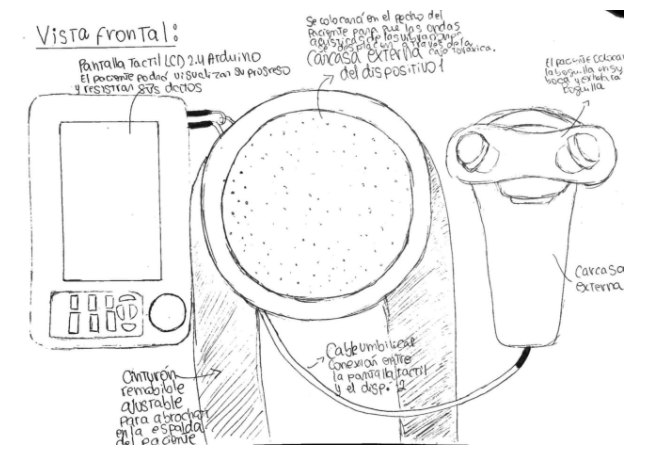 Vista frontal:
Pantalla Tactil LCD 2.4 Arduino
El paciente podra visualizar su progreso
y resistrar sus datos
Se colocará en el pecho del
paciente para que las ondas
acústicas de las vibraciones
se desplacen a través de la
caja torácica.
Carcasa externa
del dispositivo 1
El paciente colocar
la boquilla en su
boca y exhala
boquilla
Carcasa
externa
Cable umbilical
conexión entre
la pantalla tactil
y el disp. 2
Cinturón
remobible
ajustable
para abrochar
en la espalda
del paciente